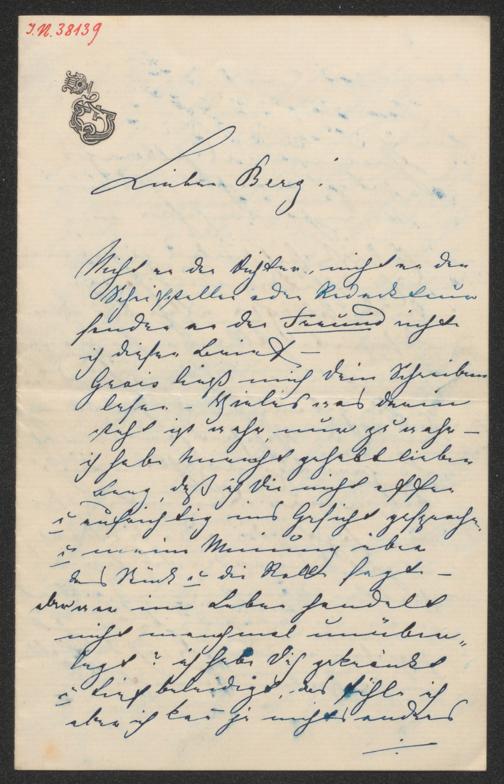 I.N. 38139
Lieber Berg!
Nicht an den Dichter, nicht an den
Schriftsteller oder Redakteur
sondern an den Freund richte
ich diesen Brief –
ließ mich dein Schreiben
lesen – Vieles was darin
steht ist wahr, nur zu wahr –
ich habe Unrecht gehabt lieber
Berg, daß ich Dir nicht offen
u aufrichtig ins Gesicht gesprochen
u meine Meinung über
das Stück u die Rolle sagte –
aber wer im Leben handelt
nicht manchmal unüber„
legt? ich habe Dich gekränkt
u tief beleidigt, das fühle ich
aber ich kann ja nichts anders